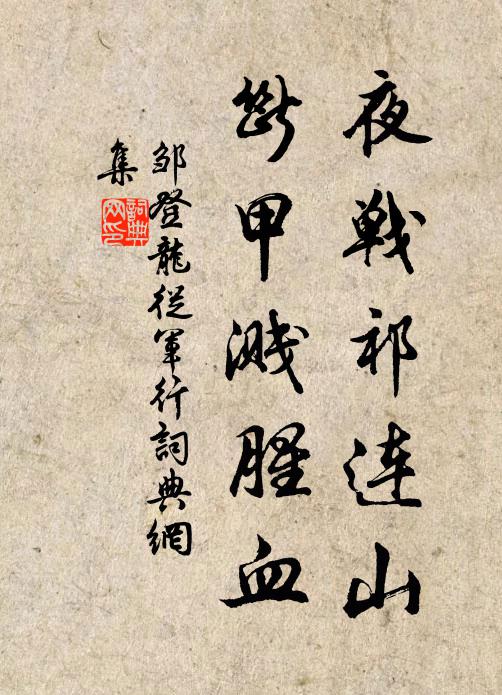 夜戰祁連山
斷甲濺腥血
鄒登龍從軍行詞典網
集
詞典网印